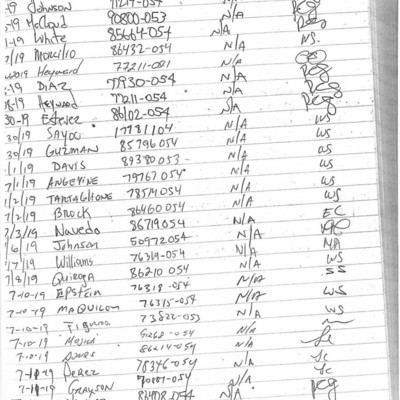 -19 Johnson 71217-054 N/A
-19 McCloud 90800-053 N/A PCG
1-19 White 85664-054 N/A WS.
/19 Morcilio 86432-054 N/A
Hayward 77211-001 N/A PCG
-19 DIAZ 77930-054 N/A PCG
-19 Heywood 77211-054 N/A PCG
30-19 Estevez 86102-054 N/A
30/19 Sayoc 17781104 N/A WS
30/19 GUZMAN 85796054 N/A WS
/1/19 DAVIS 89380053 N/A WS
7/1/19 ANGEVINE 79767054 N/A WS
/2/19 TARTAGLIONE 78514054 N/A WS
7/2/19 BROCK 86460054 N/A EC
/3/19 Navedo 86719054 N/A
/6/19 Johnson 50972054 N/A MA
/7/19 Williams 76319-054 N/A WS
7/8/19 Quiroga 86210054 N/A SS
7-10-19 EPStein 76318-054 N/A WS
7-10-19 MAQUILON 76315-054 N/A WS
7-10-19 Figueroa 73822-053 N/A
7-10-19 -054 N/A
7-10-19 86214-054 N/A
7-10-19 Perez 78346-054 N/A
7-11-19 GRAYSON -054 N/A PCG
86408-054 N/A